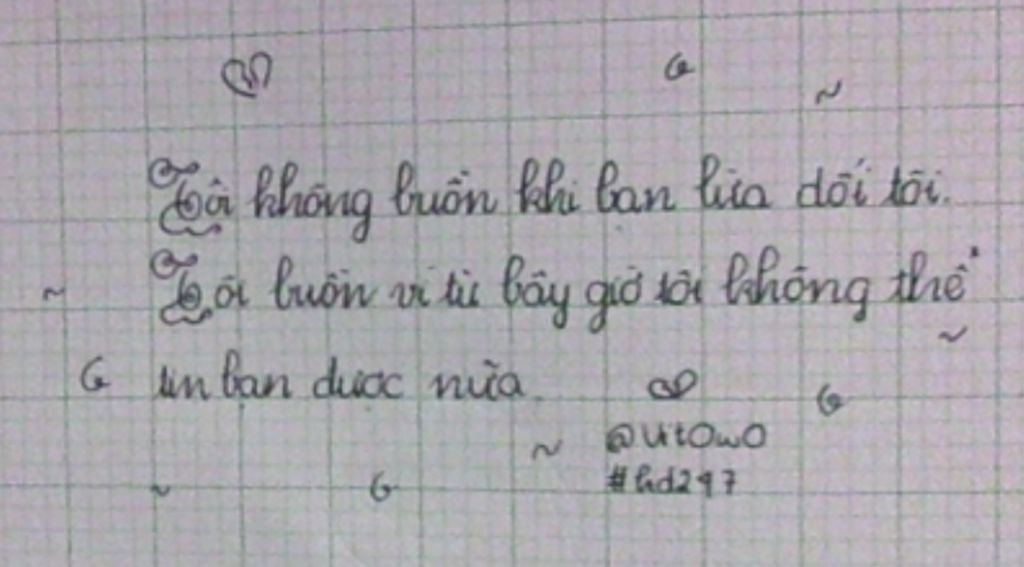 Tôi không buồn khi bạn lừa dối tôi.
Tôi buồn vì từ bây giờ tôi không thể
tin bạn được nữa.
@VitOwO
#hd297